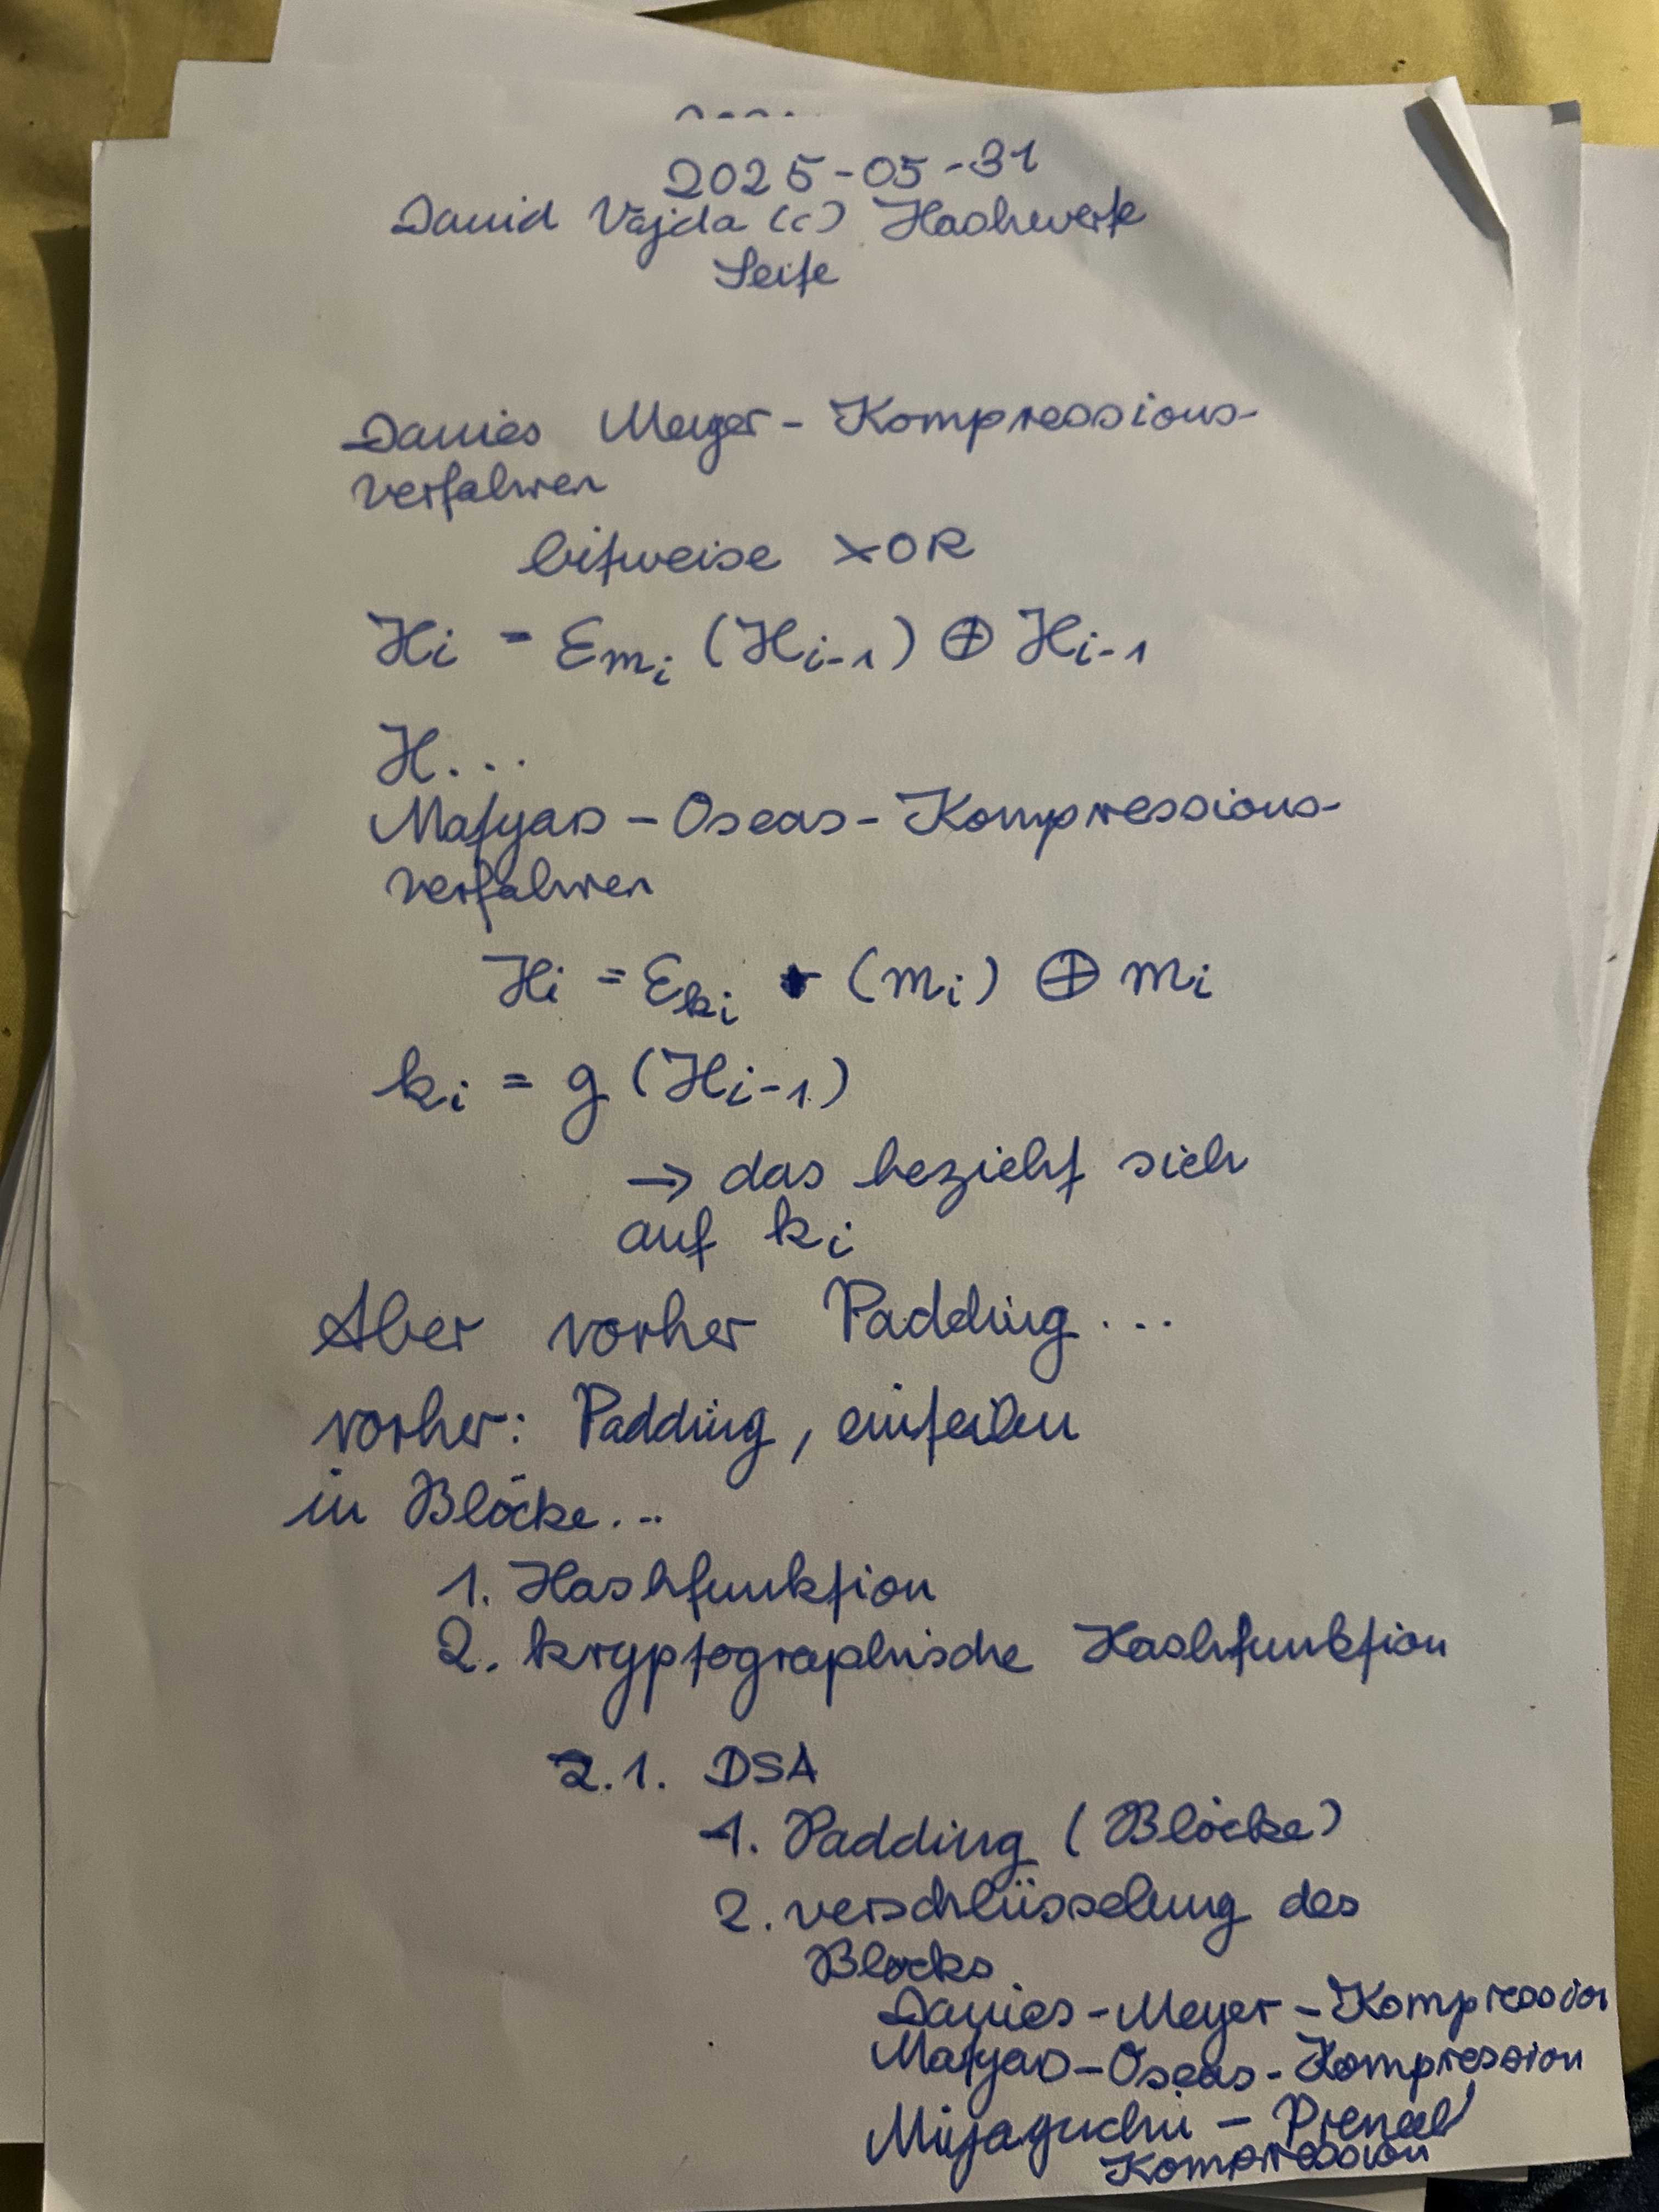 2025-05-31
David Vajda (c) Hashwerte
Seite
Davies Meyer - Kompressions-
verfahren
bitweise XOR
Hi = Emi (Hi-1) ⊕ Hi-1
H...
Matyas - Oseas - Kompressions-
verfahren
Hi = Eki (mi) ⊕ mi
ki = g (Hi-1)
→ das bezieht sich
auf ki
Aber vorher Padding...
vorher: Padding, einteilen
in Blöcke...
1. Hashfunktion
2. kryptographische Hashfunktion
2.1. DSA
1. Padding (Blöcke)
2. verschlüsselung des
Blocks
Davies-Meyer-Kompression
Matyas-Oseas-Kompression
Miyaguchi - Preneel
Kompression